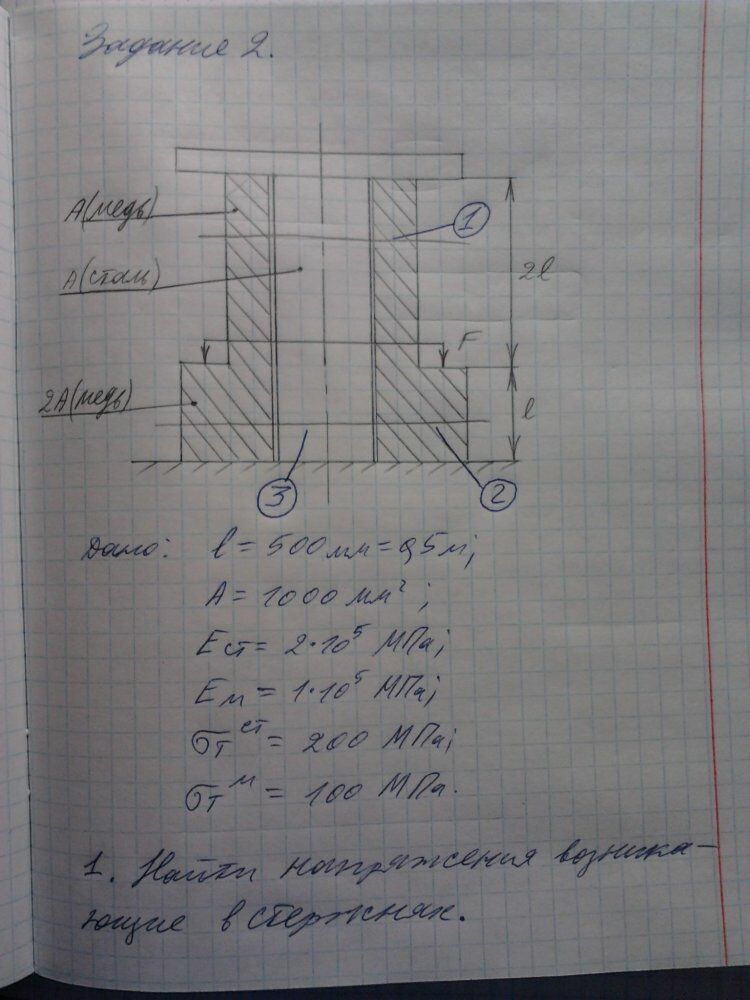 Задание 2.
А(медь)
1
А(сталь)
2l
F
2А(медь)
l
3
2
Дано: l = 500 мм = 0,5 м;
А = 1000 мм²;
Eст = 2·10⁵ МПа;
Eм = 1·10⁵ МПа;
σт^ст = 200 МПа;
σт^м = 100 МПа.
1. Найти напряжения возника-
ющие в стержнях.